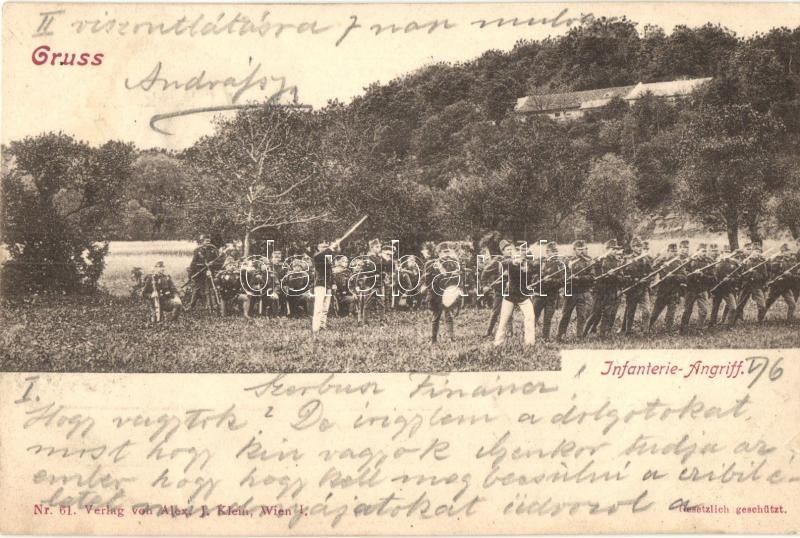 II viszontlátásra 7 nap mulva
Gruss
Andrássy
darabanth
Infanterie-Angriff. V/6
I. Szerbusz Fináncz!
Hogy vagytok? De irigylem a dolgotokat,
most hogy kin vagyok ilyenkor tudja az
ember hogy hogy kell megbecsülni a
üdvözöl a
Nr. 61. Verlag von Alex. J. Klein, Wien I.
Gesetzlich geschützt.